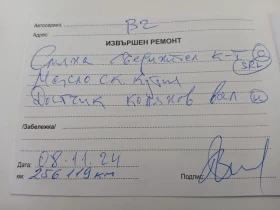 Автосервиз: B2
Адрес:
ИЗВЪРШЕН РЕМОНТ
Смяна Сверижтел к-т
Масло ск. кутия
Датчик колянов вал
/Забележка/
Дата: 08.11.24
км: 256119 км
Подпис: